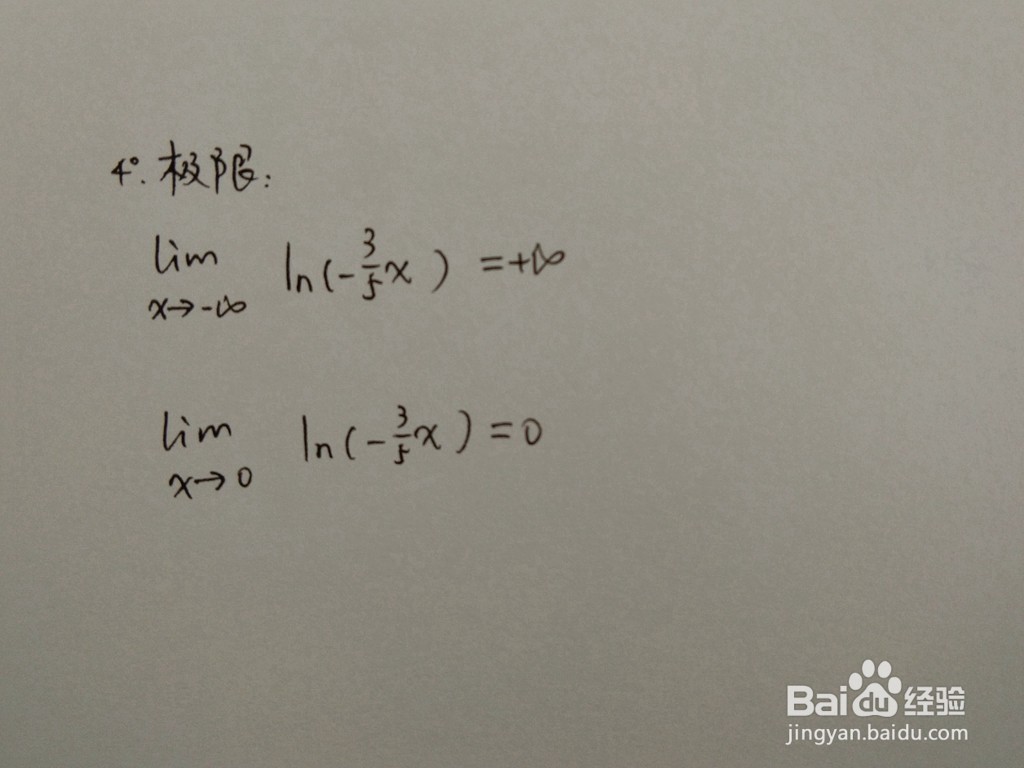 4°. 极限:
lim ln(-3/5x) = +∞
x→-∞
lim ln(-3/5x) = 0
x→0
Bai du 经验
jingyan.baidu.com